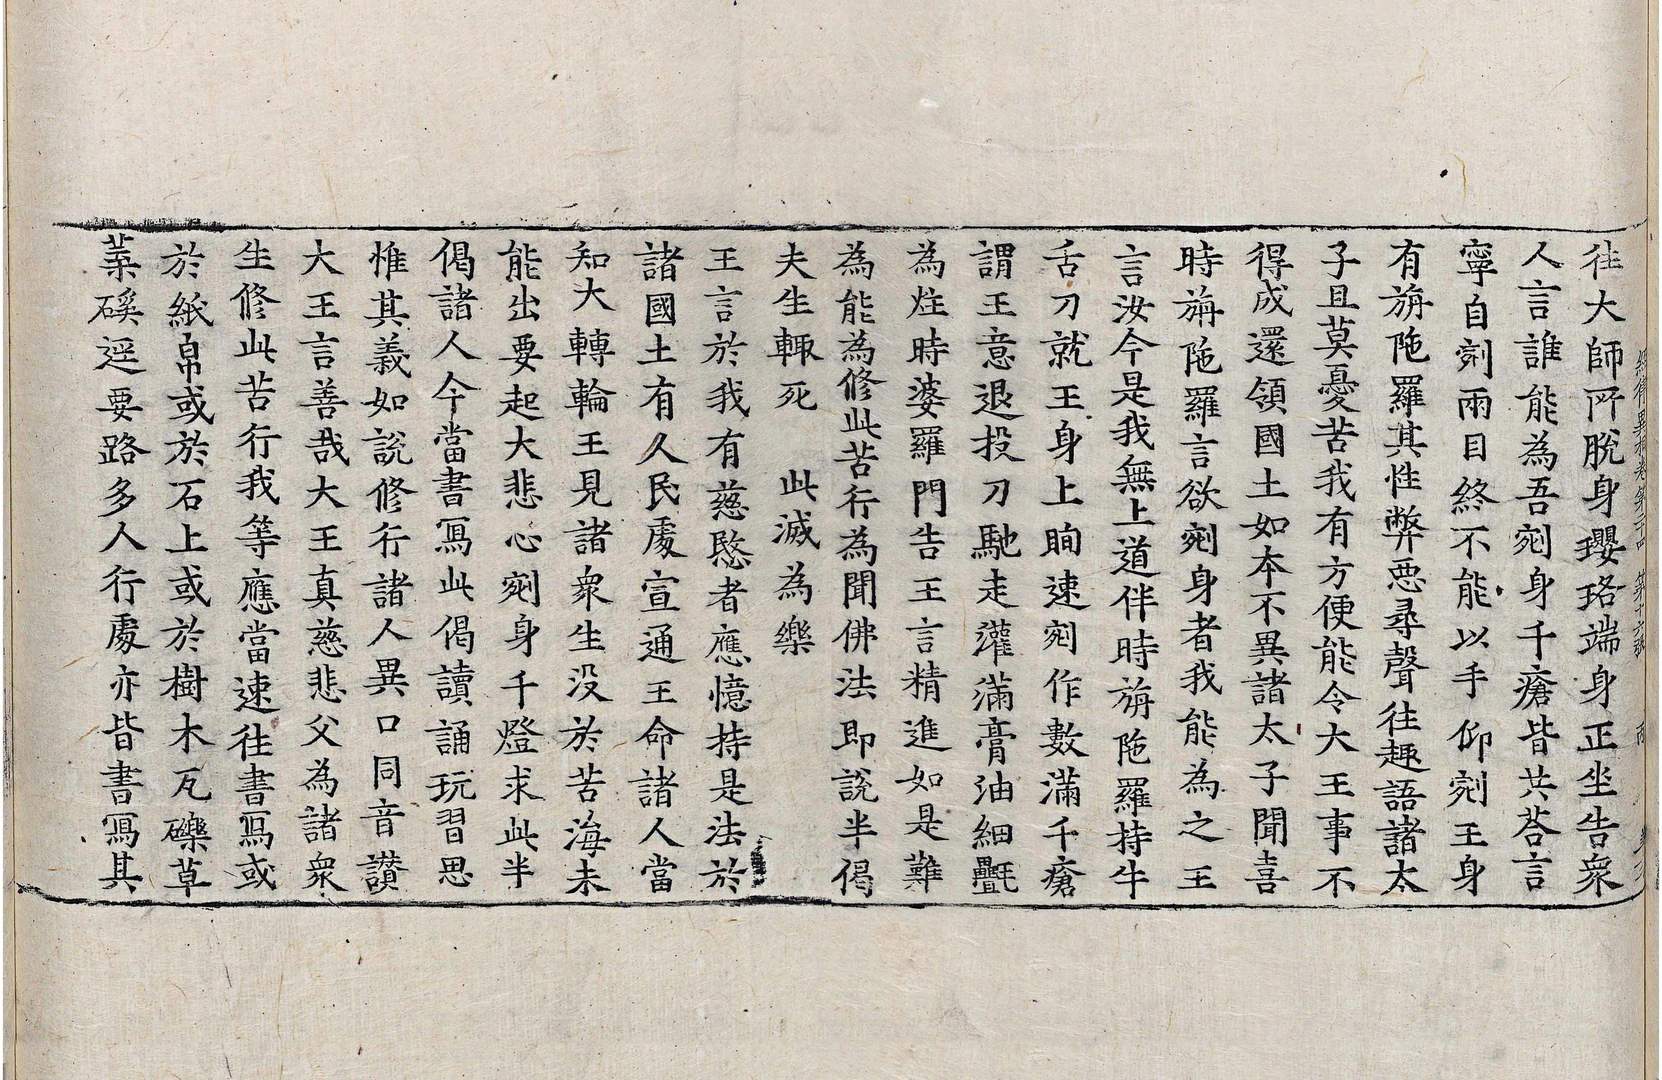 經律異相卷第二十四　第十六張
往大師所脫身瓔珞端身正坐告衆
人言誰能為吾剜身千瘡皆共荅言
寧自剜兩目終不能以手仰剜王身
有旃陁羅其性弊惡尋聲往趣語諸太
子且莫憂苦我有方便能令大王事不
得成還領國土如本不異諸太子聞喜
時旃陁羅言欲剜身者我能為之王
言汝今是我無上道伴時旃陁羅持牛
舌刀就王身上眴速剜作數滿千瘡
謂王意退投刀馳走灌滿膏油細氎
為炷時婆羅門告王言精進如是難
為能為修此苦行為聞佛法即說半偈
夫生輙死　此滅為樂
王言於我有慈愍者應憶持是法於
諸國土有久民處宣通王命諸人當
知大轉輪王見諸衆生没於苦海未
能出要起大悲心剜身千燈求此半
偈諸人今當書寫此偈讀誦玩習思
惟其義如說修行諸人異口同音讃
大王言善哉大王真慈悲父為諸衆
生修此苦行我等應當速往書寫或
於紙帛或於石上或於樹木瓦礫草
葉磎逕要路多人行處亦皆書寫其